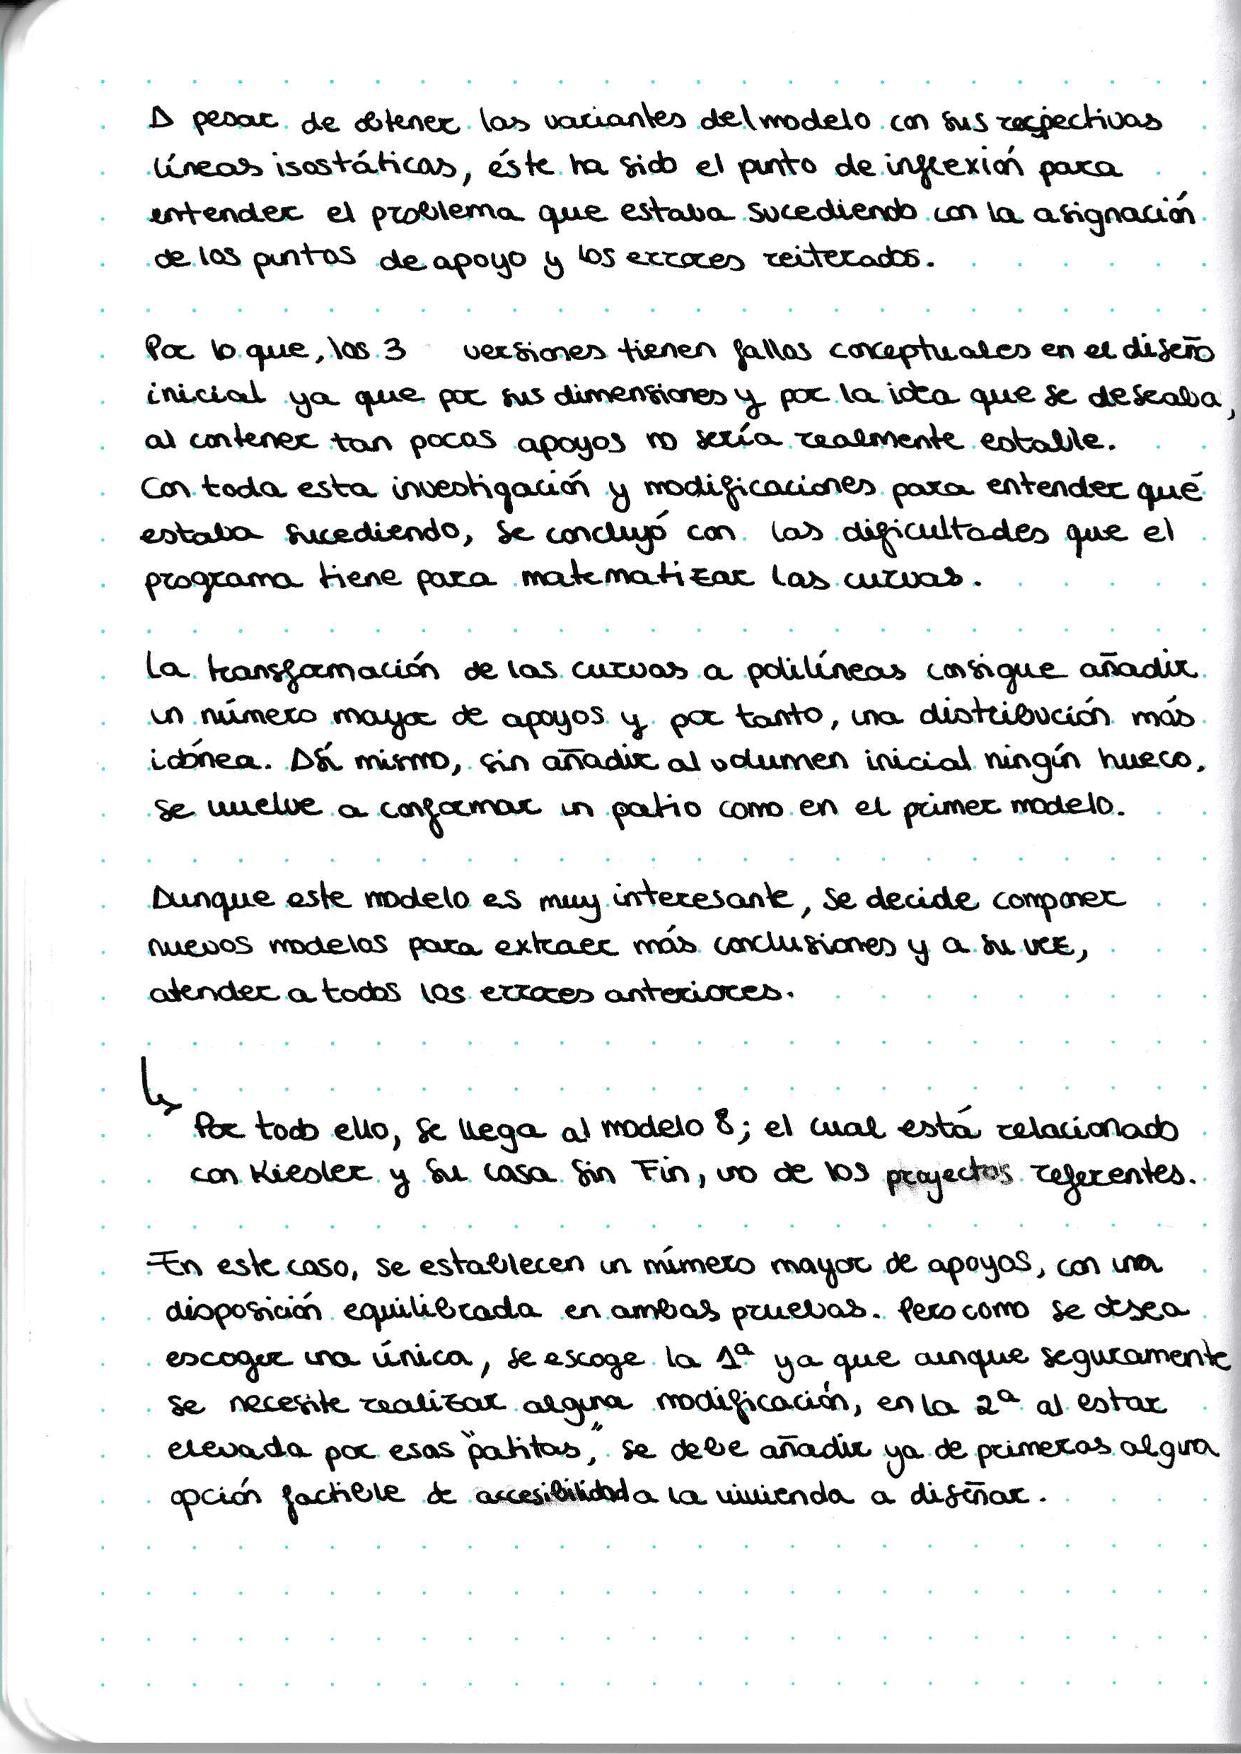 A pesar de obtener las variantes del modelo con sus respectivas
líneas isostáticas, éste ha sido el punto de inflexión para
entender el problema que estaba sucediendo con la asignación
de los puntos de apoyo y los errores reiterados.
Por lo que, las 3 versiones tienen fallas conceptuales en el diseño
inicial ya que por sus dimensiones y por la idea que se deseaba,
al contener tan pocos apoyos no sería realmente estable.
Con toda esta investigación y modificaciones para entender qué
estaba sucediendo, se concluyó con las dificultades que el
programa tiene para matematizar las curvas.
La transformación de las curvas a polilíneas consigue añadir
un número mayor de apoyos y por tanto, una distribución más
idónea. Así mismo, sin añadir al volumen inicial ningún hueco,
se vuelve a conformar un patio como en el primer modelo.
Aunque este modelo es muy interesante, se decide componer
nuevos modelos para extraer más conclusiones y a su vez,
atender a todos los errores anteriores.
↳
Por todo ello, se llega al modelo 8; el cual está relacionado
con Kiesler y su casa Sin Fin, uno de los proyectos referentes.
En este caso, se establecen un número mayor de apoyos, con una
disposición equilibrada en ambas pruebas. Pero como se desea
escoger una única, se escoge la 1ª ya que aunque seguramente
se necesite realizar alguna modificación, en la 2ª al estar
elevada por esas "patitas", se debe añadir ya de primeras alguna
opción factible de accesibilidad a la vivienda a diseñar.